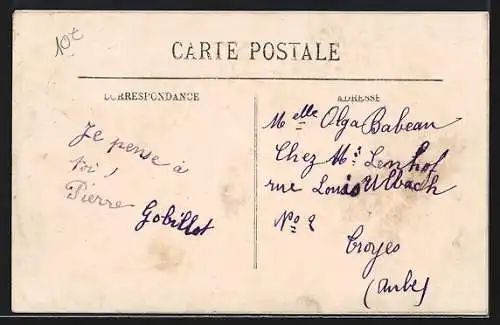 10€
CARTE POSTALE
CORRESPONDANCE
ADRESSE
Je pense à
toi,
Pierre
Gobillot
Melle Olga Babeau
Chez Mr Lenhof
rue Louis Ulbach
No 2
Troyes
(Aube)